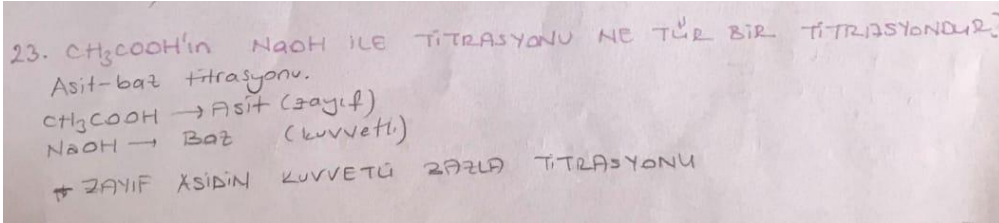 23. CH₃COOH'ın NaOH İLE TİTRASYONU NE TÜR BİR TİTRASYONDUR?
Asit-baz titrasyonu.
CH₃COOH → Asit (zayıf)
NaOH → Baz (kuvvetli)
* ZAYIF ASİDİN KUVVETLİ BAZLA TİTRASYONU